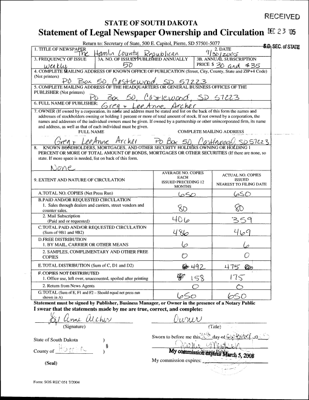 RECEIVED
STATE OF SOUTH DAKOTA
Statement of Legal Newspaper Ownership and Circulation DEC 23 '05
Return to: Secretary of State, 500 E. Capitol, Pierre, SD 57501-5077
S.D. SEC. of STATE
1. TITLE OF NEWSPAPER The Hamlin County Republican
2. DATE 9/30/2005
3. FREQUENCY OF ISSUE weekly
3A. NO. OF ISSUES PUBLISHED ANNUALLY 50
3B. ANNUAL SUBSCRIPTION PRICE $ 30 and $35
4. COMPLETE MAILING ADDRESS OF KNOWN OFFICE OF PUBLICATION (Street, City, County, State and ZIP+4 Code)
(Not printers)
PO Box 50, Castlewood, SD 57223
5. COMPLETE MAILING ADDRESS OF THE HEADQUARTERS OR GENERAL BUSINESS OFFICES OF THE PUBLISHER (Not printers)
PO Box 50, Castlewood, SD 57223
6. FULL NAME OF PUBLISHER: Greg + LeeAnne Archer
7. OWNER (If owned by a corporation, its name and address must be stated and list on the back of this form the names and
addresses of stockholders owning or holding 1 percent or more of total amount of stock. If not owned by a corporation, the
names and addresses of the individual owners must be given. If owned by a partnership or other unincorporated firm, its name
and address, as well as that of each individual must be given.
FULL NAME
COMPLETE MAILING ADDRESS
Greg + LeeAnne Archer
PO Box 50 Castlewood, SD 57223
8. KNOWN BONDHOLDERS, MORTGAGES, AND OTHER SECURITY HOLDERS OWNING OR HOLDING 1
PERCENT OR MORE OF TOTAL AMOUNT OF BONDS, MORTGAGES OR OTHER SECURITIES (If there are none, so
state. If more space is needed, list on back of this form.
None
9. EXTENT AND NATURE OF CIRCULATION
AVERAGE NO. COPIES EACH ISSUED PRECEDING 12 MONTHS
ACTUAL NO. COPIES ISSUED NEAREST TO FILING DATE
A. TOTAL NO. COPIES (Net Press Run) 650 650
B. PAID AND/OR REQUESTED CIRCULATION
1. Sales through dealers and carriers, street vendors and
counter sales. 80 80
2. Mail Subscription
(Paid and or requested) 406 359
C. TOTAL PAID AND/OR REQUESTED CIRCULATION
(Sum of 9B1 and 9B2) 486 469
D. FREE DISTRIBUTION
1. BY MAIL, CARRIER OR OTHER MEANS 6 6
2. SAMPLES, COMPLIMENTARY AND OTHER FREE
COPIES 0 0
E. TOTAL DISTRIBUTION (Sum of C, D1 and D2) 492 475
F. COPIES NOT DISTRIBUTED
1. Office use, left over, unaccounted, spoiled after printing 158 175
2. Return from News Agents 0 0
G. TOTAL (Sum of E, F1 and F2 - Should equal net press run
shown in A) 650 650
Statement must be signed by Publisher, Business Manager, or Owner in the presence of a Notary Public
I swear that the statements made by me are true, correct, and complete:
Owner
(Signature)
(Title)
State of South Dakota )
§
County of )
Sworn to before me this day of
My commission expires March 5, 2008
(Seal)
My commission expires: